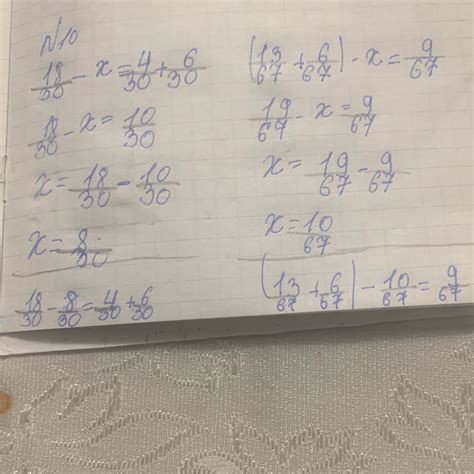 №10
18/30 - x = 4/30 + 6/30
18/30 - x = 10/30
x = 18/30 - 10/30
x = 8/30
18/30 - 8/30 = 4/30 + 6/30
(13/67 + 6/67) - x = 9/67
19/67 - x = 9/67
x = 19/67 - 9/67
x = 10/67
(13/67 + 6/67) - 10/67 = 9/67